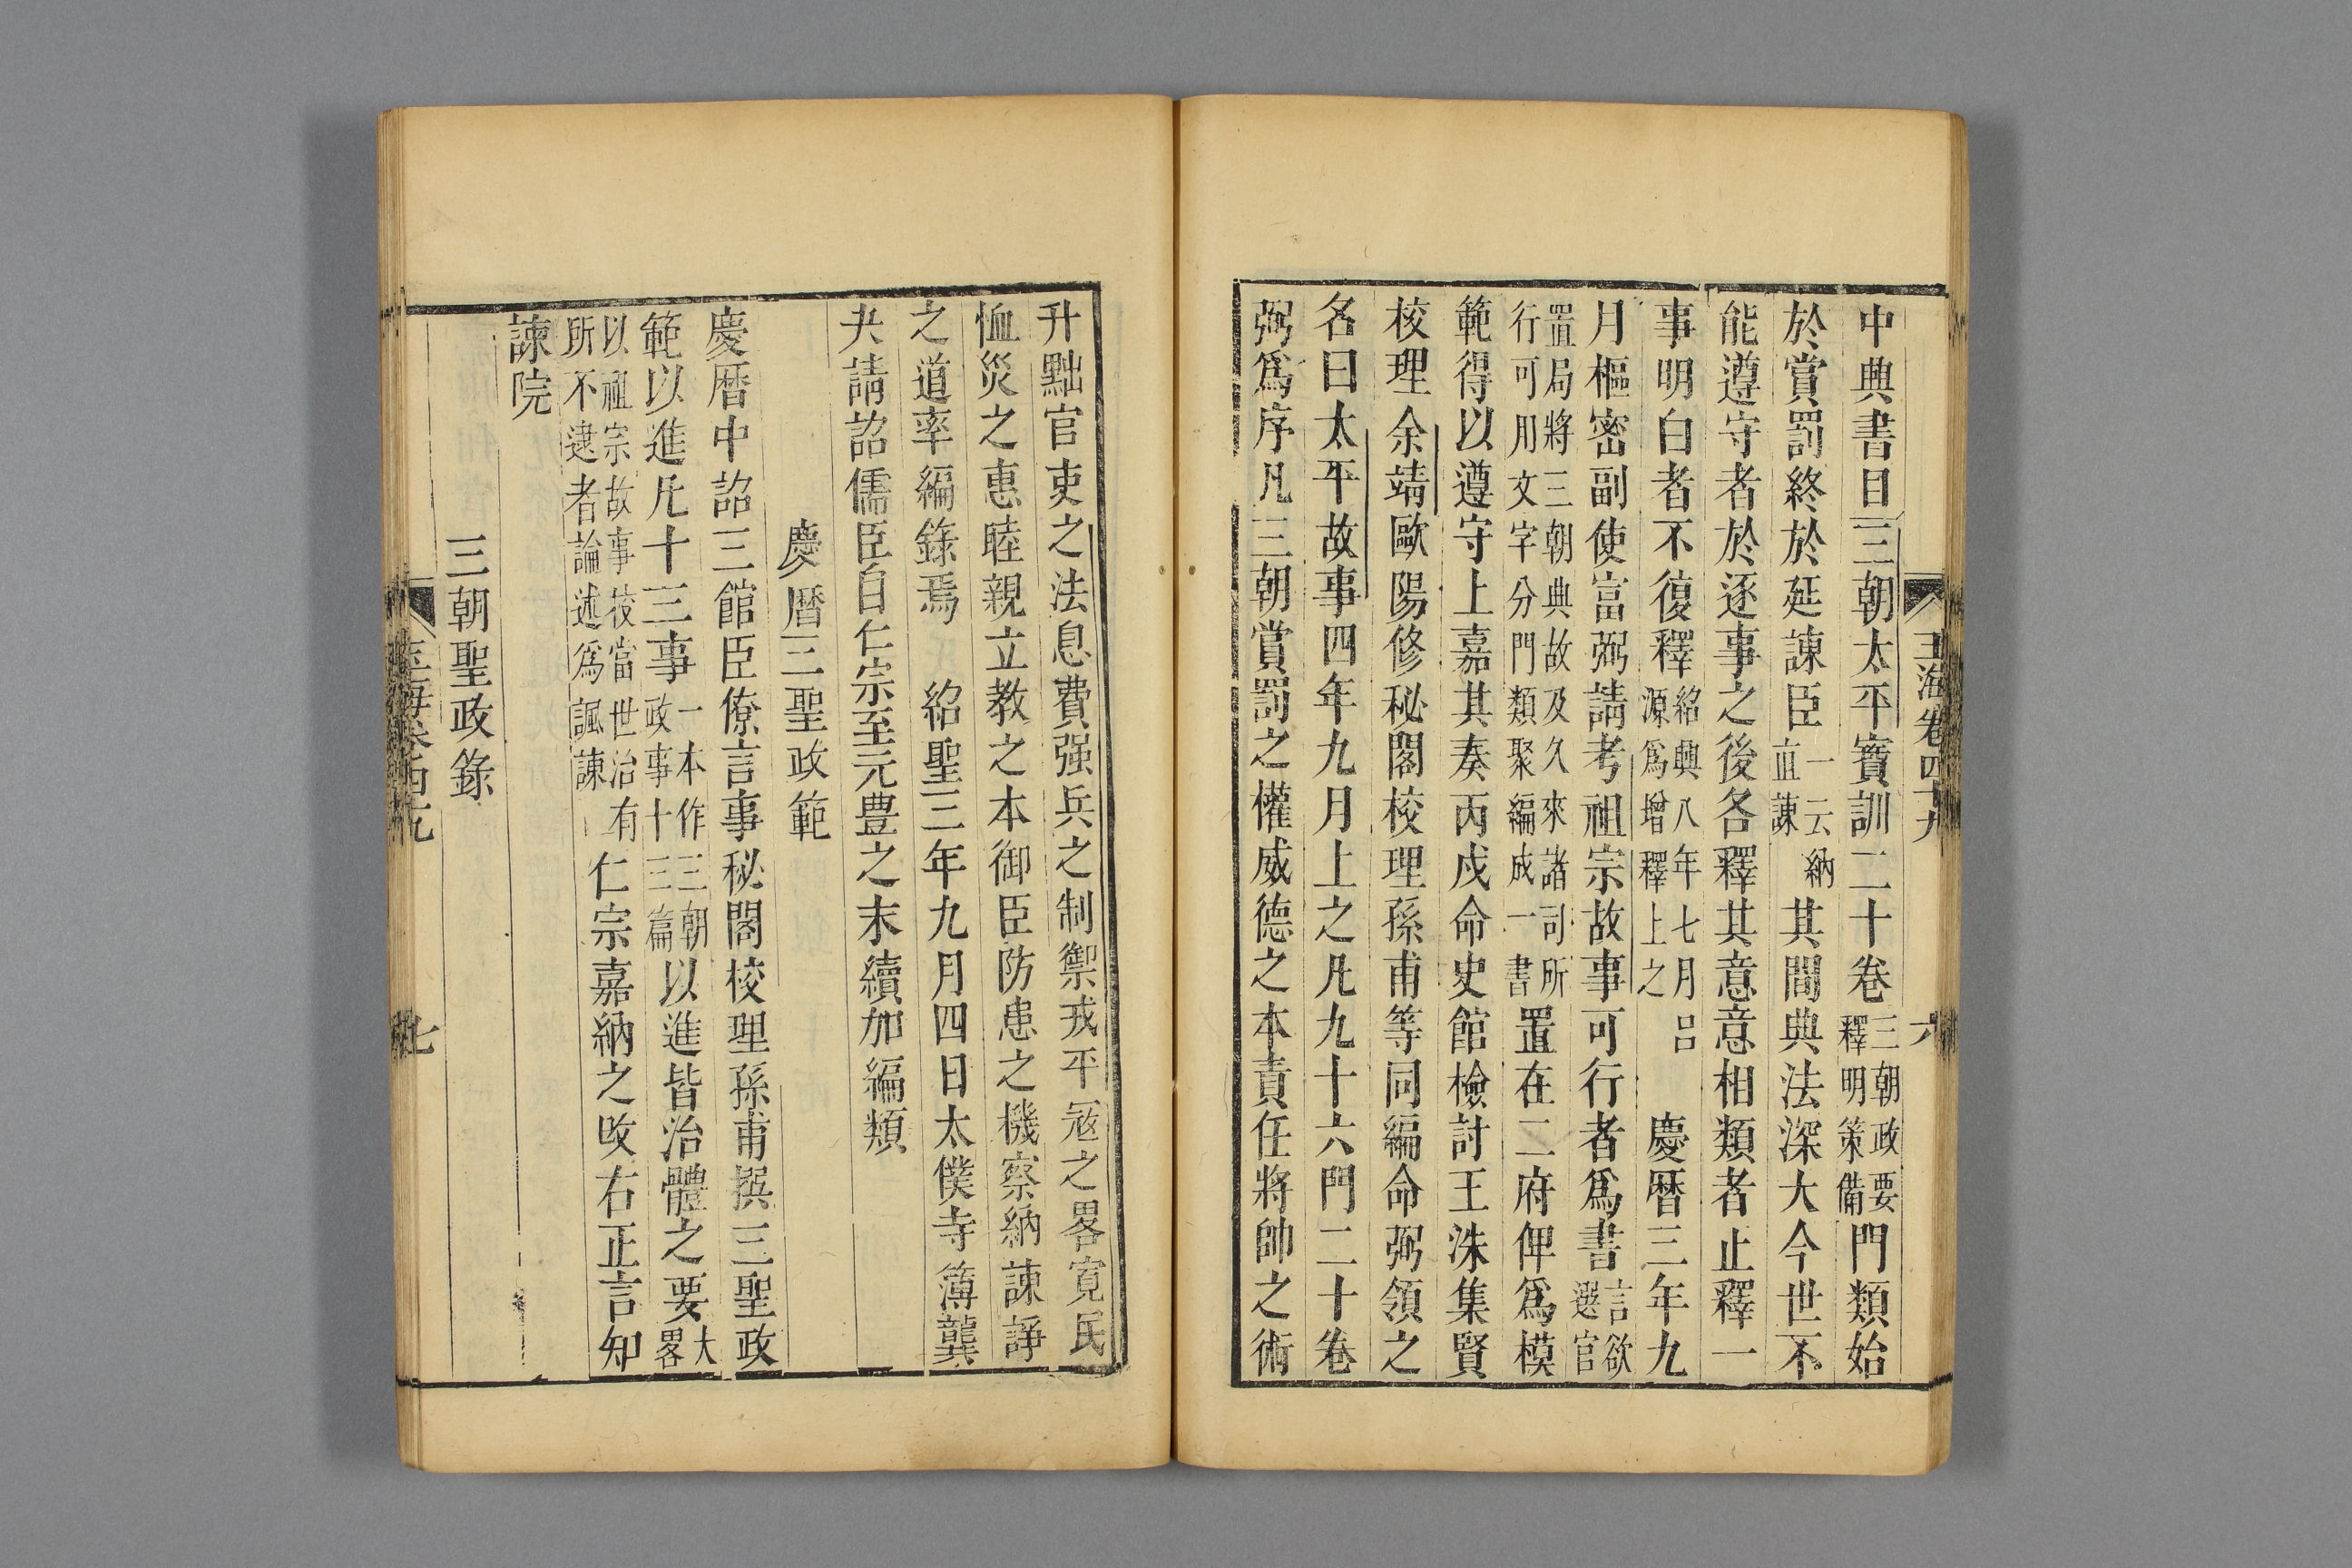 中興書目三朝太平寶訓二十卷三朝政要釋明策備門類始
於賞罰終於延諫臣一云納直諫其間典法深大今世不
能遵守者於逐事之後各釋其意意相類者止釋一
事明白者不復釋紹興八年七月呂源爲增釋上之慶曆三年九
月樞密副使富弼請考祖宗故事可行者爲書言欲選官
置局將三朝典故及久來諸司所行可用文字分門類聚編成一書置在二府俾爲模
範得以遵守上嘉其奏丙戌命史館檢討王洙集賢
校理余靖歐陽修秘閣校理孫甫等同編命弼領之
名曰太平故事四年九月上之凡九十六門二十卷
弼爲序凡三朝賞罰之權威德之本責任將帥之術
玉海卷四十九
六
升黜官吏之法息費强兵之制禦戎平冦之畧寛民
恤災之惠睦親立教之本御臣防患之機察納諫諍
之道率編錄焉 紹聖三年九月四日太僕寺簿龔
夬請詔儒臣自仁宗至元豊之末續加編類
慶曆三聖政範
慶曆中詔三館臣僚言事秘閣校理孫甫撰三聖政
範以進凡十三事一本作三朝政事十三篇以進皆治體之要大畧
以祖宗故事校當世治有所不逮者論述爲諷諫仁宗嘉納之改右正言知
諫院
三朝聖政錄
玉海卷四十九
七